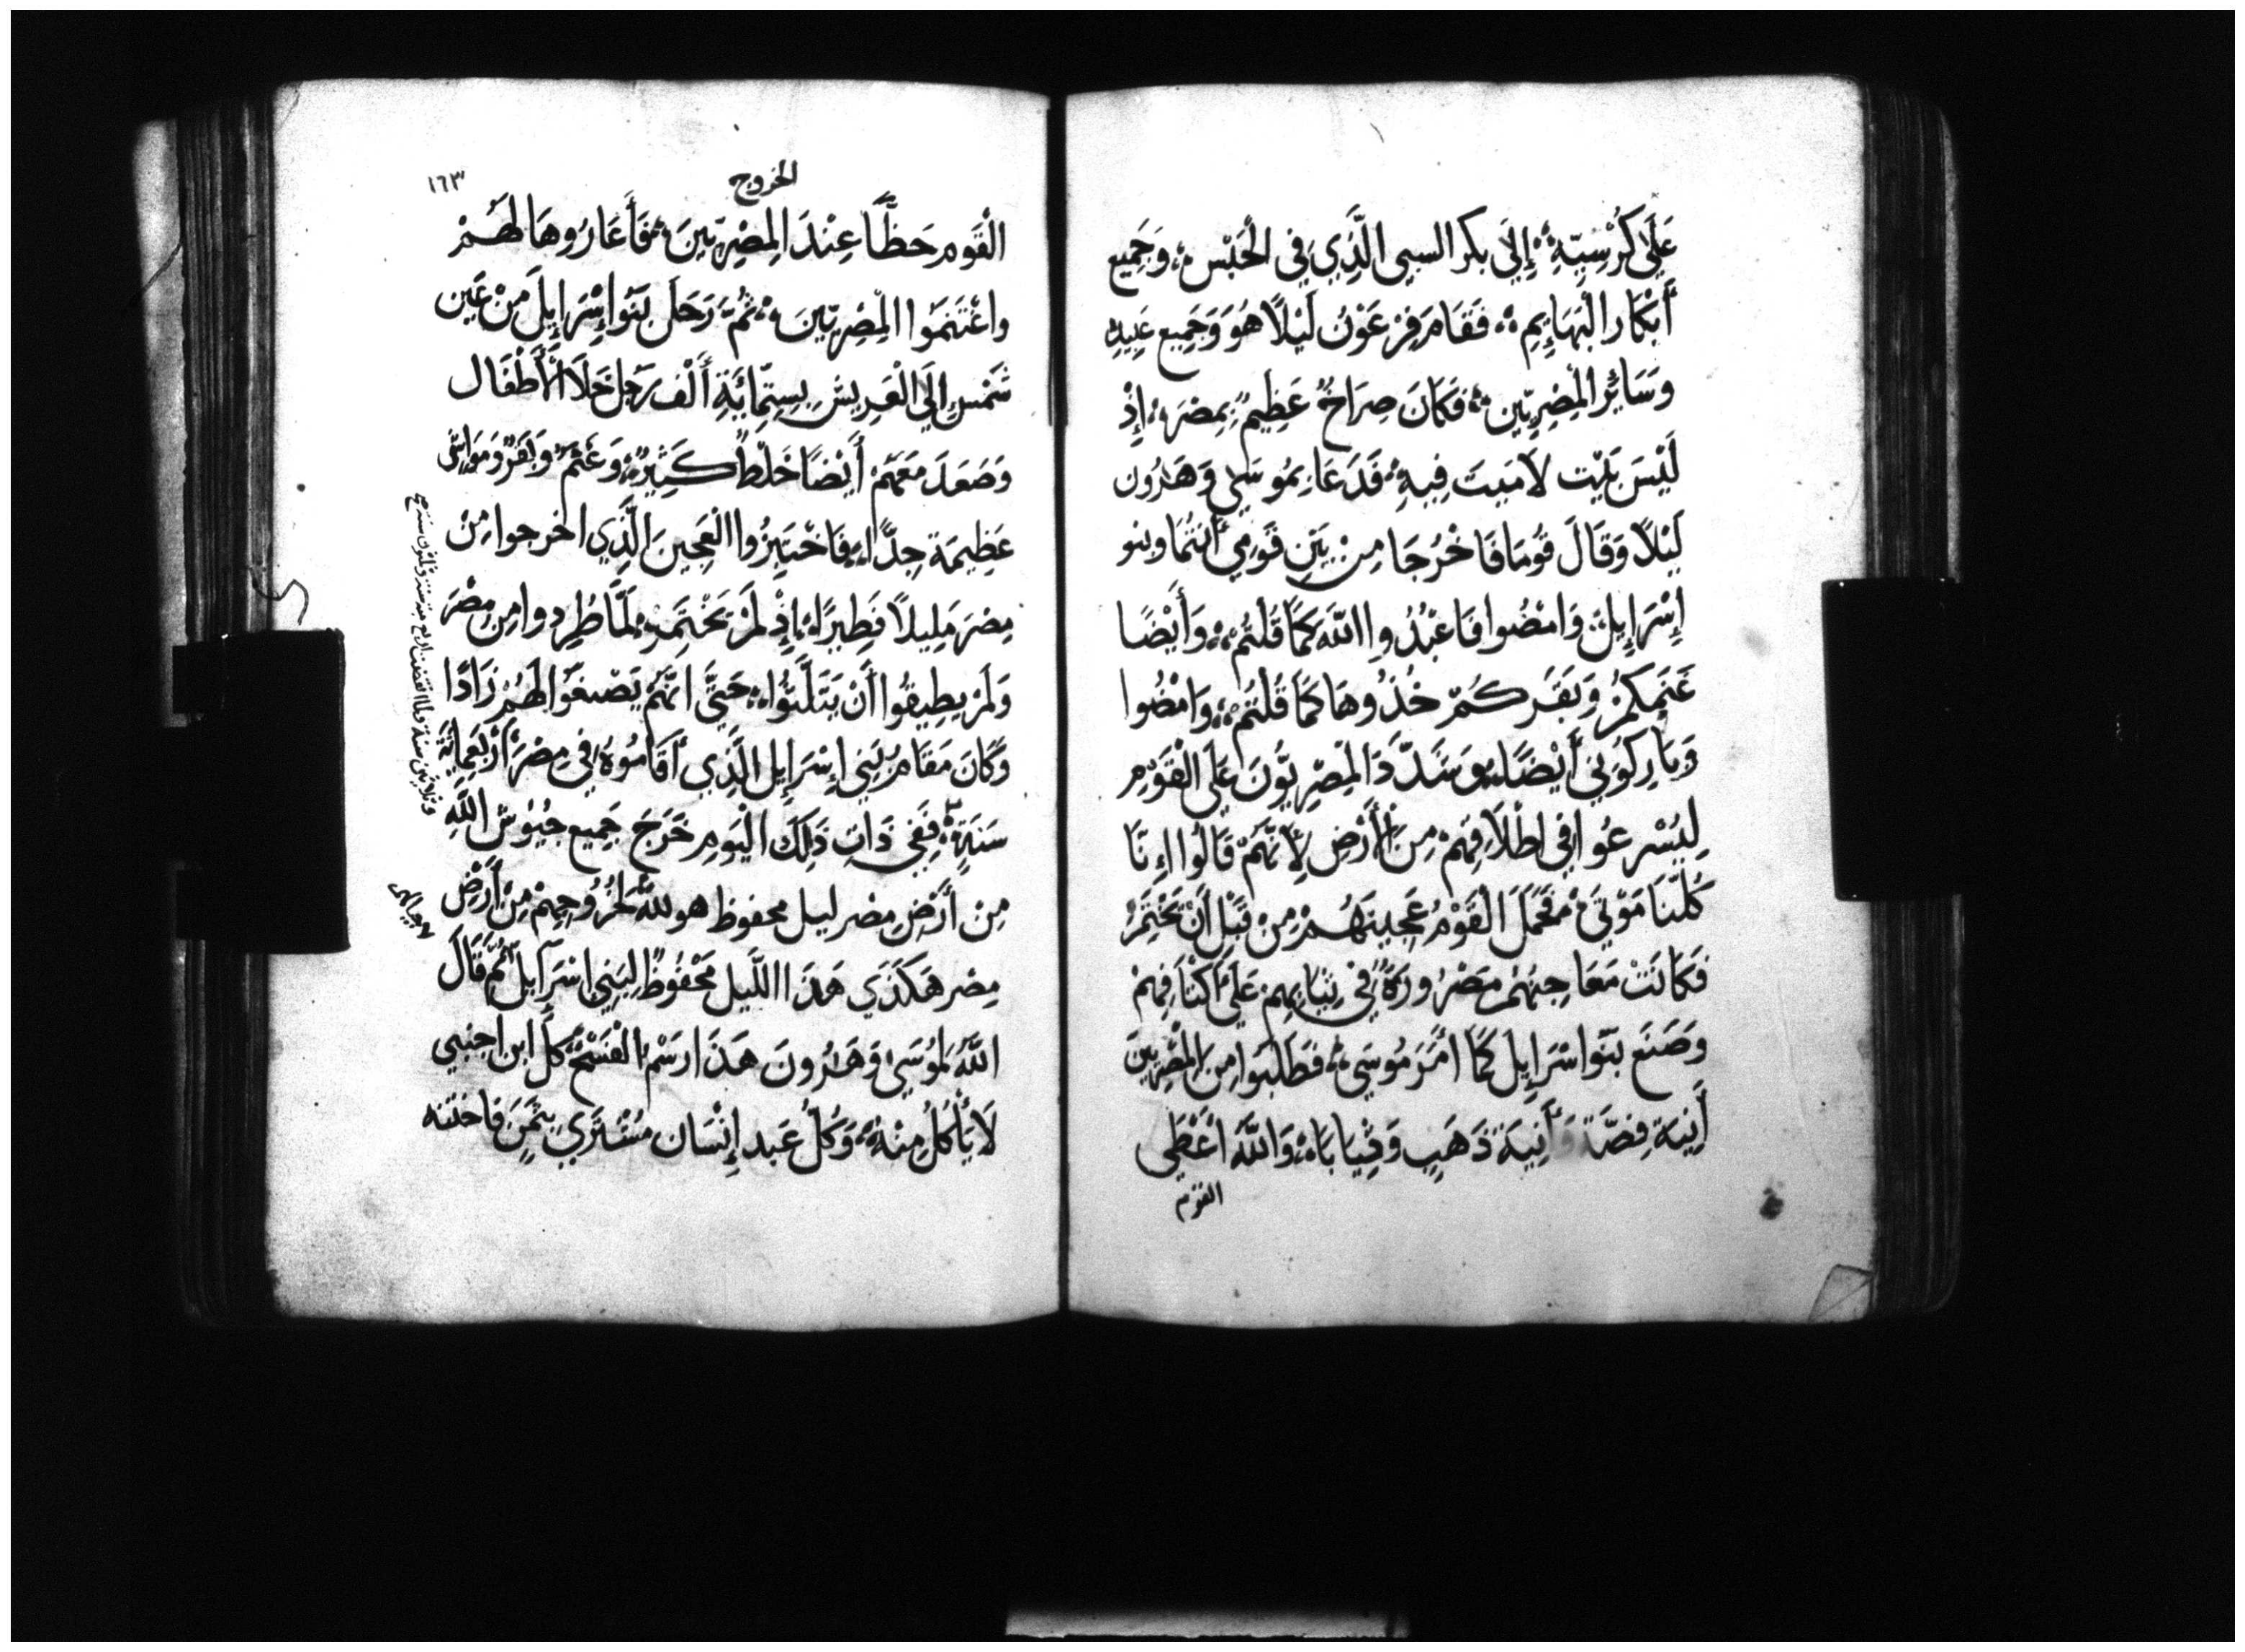 عَلَى كُرْسِيِّهِ إِلَى بكر السبي الَّذِي فِي الْحَبْس وَجَمِيع
أَبْكَار الْبَهَايِمِ فَقَامَ فِرْعَوْنُ لَيْلًا هُوَ وَجَمِيع عَبِيدِهِ
وَسَايُرُ الْمِصْرِيّين فَكَانَ صِرَاخٌ عَظِيمٌ بِمِصْرَ إِذْ
لَيْسَ بَيْت لَا مَيِتَ فِيهِ فَدَعَا بِمُوسَى وَهَرُون
لَيْلًا وَقَالَ قُومَا فَاخْرُجَا مِنْ بَيْنِ قَوْمِي أَنْتُمَا وبنو
إِسْرَايِلَ وَامْضُوا فَاعْبُدُوا اللَّهَ كَمَا قُلْتُمْ وَأَيْضًا
غَنَمكُمْ وَبَقَركُمْ خُذُوهَا كَمَا قُلْتُمْ وَامْضُوا
وَبَارِكُونِي أَيْضًا وَشَدَّدَ الْمِصْرِيُّونَ عَلَى الْقَوْمِ
لِيُسْرِعُوا فِي اطْلَاقِهِمْ مِنَ الْأَرْضِ لِأَنَّهُمْ قَالُوا إِنَّا
كُلّنَا مَوْتَى فَحَمَلَ الْقَوْمُ عَجِينَهُمْ مِنْ قَبْلِ أَنْ يَخْتَمِرُ
فَكَانَتْ مَعَاجِنُهُمْ مَصْرُورَةً فِي ثِيَابِهِمْ عَلَى أَكْتَافِهِمْ
وَصَنَعَ بَنَوا اسْرَايِل كَمَا أَمَرَ مُوسَى فَطَلَبَوا مِنَ الْمِصْرِيّينَ
أَنِيَة فِضَّة وَأَنِيَة ذَهَبٍ وَثِيَابَا وَاللَّهُ اعْطَى
القوم
الخروج
١٦٣
الْقَوم حَظًّا عِنْدَ الْمِصْرِيّينَ فَأَعَارُوهَا لَهُمْ
واغْتَنَمُوا الْمِصْرِيّينَ ثُمَّ رَحَلَ بَنَوا إِسْرَايِلَ مِنْ عَين
شَمْسٍ إِلَى الْعَرِيشِ بِسِتّمِائَةِ أَلْف رَجُل خَلَا الْأَطْفَال
وَصَعَدَ مَعَهُمْ أَيْضًا خَلْطٌ كَثِيرٌ وَغَنَمٌ وَبَقَرٌ وَمَوَاشِي
عَظِيمَة جِدًّا فَاخْتَبِزُوا الْعَجِينَ الَّذِي اخرجوا مِنْ
مِصْرَ مَلِيلًا فَطِيرًا إِذْ لَمْ يَخْتَمِرْ لَمَّا طُرِدوا مِن مِصْرَ
وَلَمْ يطِيقُوا أَنْ يَتَلَبَّثُوا حَتَّى انَّهُمْ يَصْنَعُوا لَهُمْ زَادًا
وَكَانَ مَقَامُ بَنِي إِسْرَايِل الَّذِي أَقَامُوهُ فِي مِصْرَ أَرْبَعمِائَة
سَنَةٍ فَفِي ذَاتِ ذَلِكَ الْيَومِ خَرَجَ جَمِيع جُيُوشُ اللَّهِ
مِنْ أَرْضِ مِصْر ليل محفوظ هو لِلَّهِ لِخُرُوجِهِمْ مِنْ أَرْضِ
مِصر هَكَذَي هَذَا اللَّيل مَحْفُوظٌ لِبَنِي اسْرَايِلَ ثُمَّ قَالَ
اللَّهُ لِمُوسَى وَهَرُونَ هَذَا رَسْمُ الْفَسْحُ كل ابن اجنبي
لَا يَأْكُلُ مِنْهُ وَكُل عَبد إِنْسَان مُشْتَرَي بِثَمَن فاختنه